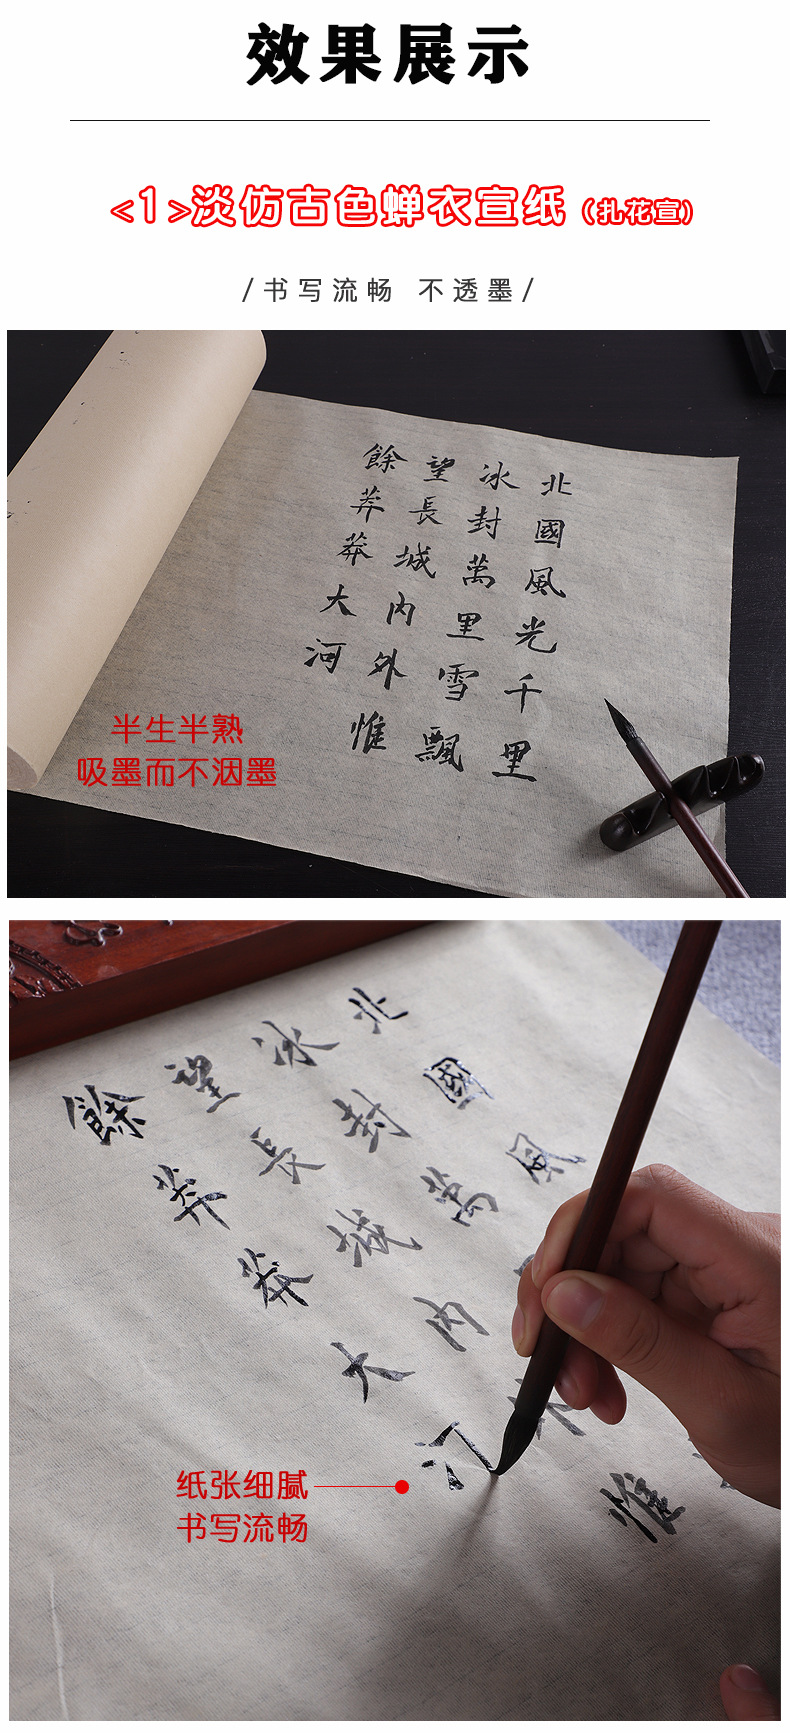 效果展示
<1>淡仿古色蝉衣宣纸（扎花宣）
/书写流畅 不透墨/
北國風光千里
冰封萬里雪飄
望長城內外惟
餘莽莽大河
半生半熟
吸墨而不洇墨
北國風
冰封萬
望長城內外惟
餘莽莽大河
纸张细腻
书写流畅